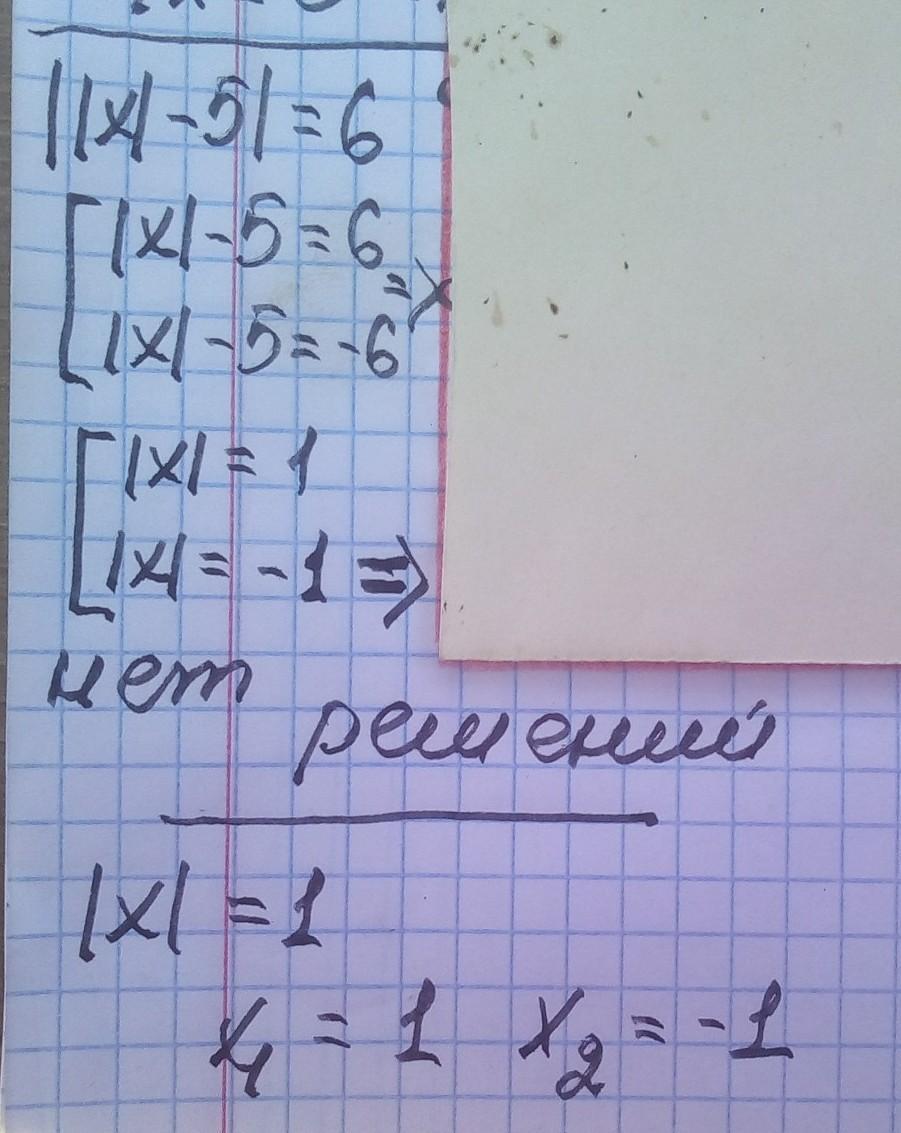 ||x| - 5| = 6
[ |x| - 5 = 6
=>
|x| - 5 = -6
[ |x| = 1
|x| = -1 =>
нет
решений
|x| = 1
x₁ = 1 x₂ = -1